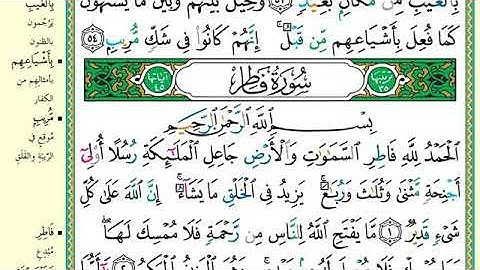 بِٱلْغَيْبِ مِن مَّكَانٍۭ بَعِيدٍ ۝٥٣ وَحِيلَ بَيْنَهُمْ وَبَيْنَ مَا يَشْتَهُونَ
كَمَا فُعِلَ بِأَشْيَاعِهِم مِّن قَبْلُ ۚ إِنَّهُمْ كَانُوا۟ فِى شَكٍّ مُّرِيبٍۭ ۝٥٤
ترتيبها ٣٥ سُورَةُ فَاطِرٍ آياتها ٤٥
بِسْمِ ٱللَّهِ ٱلرَّحْمَٰنِ ٱلرَّحِيمِ
ٱلْحَمْدُ لِلَّهِ فَاطِرِ ٱلسَّمَٰوَٰتِ وَٱلْأَرْضِ جَاعِلِ ٱلْمَلَٰٓئِكَةِ رُسُلًا أُو۟لِىٓ
أَجْنِحَةٍ مَّثْنَىٰ وَثُلَٰثَ وَرُبَٰعَ ۚ يَزِيدُ فِى ٱلْخَلْقِ مَا يَشَآءُ ۚ إِنَّ ٱللَّهَ عَلَىٰ كُلِّ
شَىْءٍ قَدِيرٌ ۝١ مَّا يَفْتَحِ ٱللَّهُ لِلنَّاسِ مِن رَّحْمَةٍ فَلَا مُمْسِكَ لَهَا ۖ
بِالغَيْبِ
يَرْجُمون
بالظنون
بِأَشْيَاعِهِم
بأمثالِهم من
الكفّار
مُّرِيبٍ
مُوقِعٍ في
الرِّيبَةِ والقَلَقِ
فَاطِرِ
مُبْدِعِ